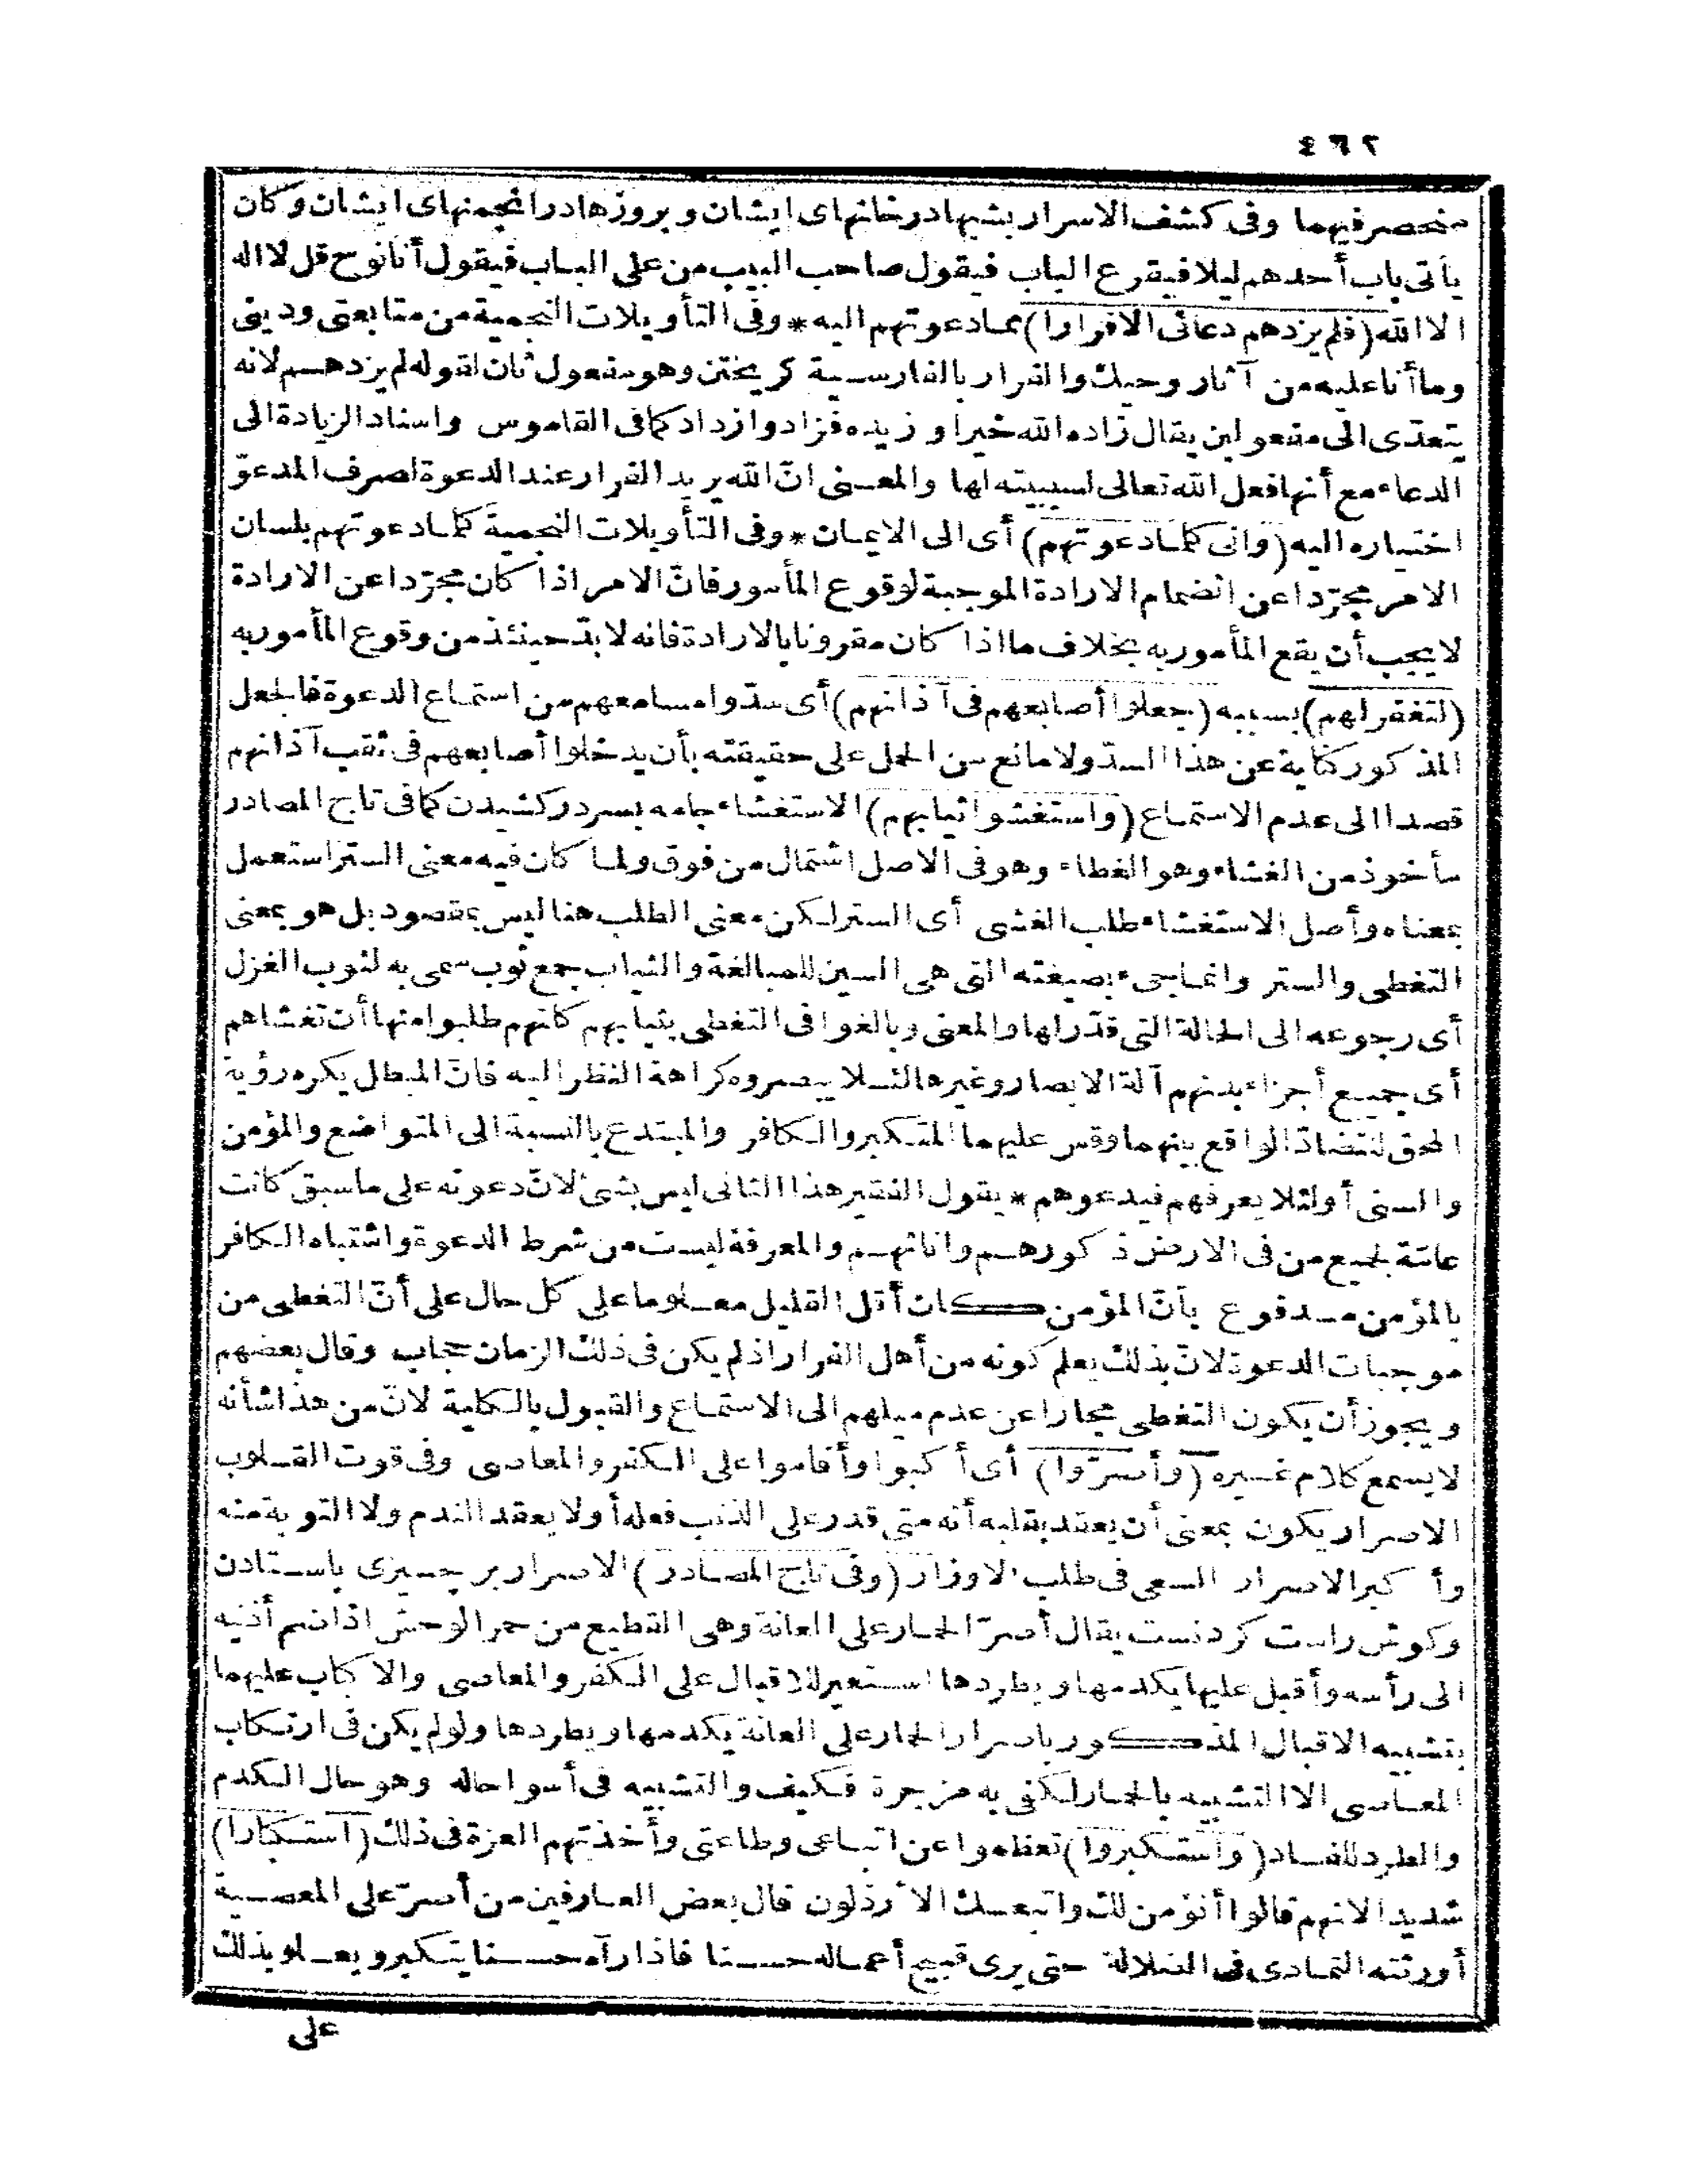 ٤٦٢
منحصر فيهما وفى كشف الاسرار بشبها درخانهاى ايشان وبروزها در انجمنهاى ايشان وكان
يأتى باب أحدهم ليلا فيقرع الباب فيقول صاحب البيت من على الباب فيقول أنا نوح قل لا اله
الا الله (فلم يزدهم دعائى الا فرارا) مما دعوتهم اليه * وفى التأويلات النجمية من متابعتى ودينى
وما أنا عليه من آثار وحيك والفرار بالفارسية كريختن وهو مفعول ثان لقوله لم يزدهم لانه
يتعدّى الى مفعولين يقال زاده الله خيرا وزيده فزاد وازداد كما فى القاموس واسناد الزيادة الى
الدعاء مع أنها فعل الله تعالى لسببيته لها والمعنى انّ الله يريد الفرار عند الدعوة لصرف المدعوّ
اختياره اليه (وانى كلما دعوتهم) أى الى الايمان * وفى التأويلات النجمية كلما دعوتهم بلسان
الامر مجرّدا عن انضمام الارادة الموجبة لوقوع المأمور فانّ الامر اذا كان مجرّدا عن الارادة
لا يجب أن يقع المأمور به بخلاف ما اذا كان مقرونا بالارادة فانه لا بدّ حينئذ من وقوع المأمور به
(لتغفر لهم) بسببه (جعلوا أصابعهم فى آذانهم) أى سدّوا مسامعهم من استماع الدعوة فالجعل
المذكور كناية عن هذا السدّ ولا مانع من الحمل على حقيقته بأن يدخلوا أصابعهم فى ثقب آذانهم
قصدا الى عدم الاستماع (واستغشوا ثيابهم) الاستغشاء جامه بسر دركشيدن كما فى تاج المصادر
مأخوذ من الغشاء وهو الغطاء وهو فى الاصل اشتمال من فوق ولما كان فيه معنى الستر استعمل
بمعناه وأصل الاستغشاء طلب الغشى أى الستر لكن معنى الطلب هنا ليس بمقصود بل هو بمعنى
التغطى والستر وانما جىء بصيغته التى هى السين للمبالغة والثياب جمع ثوب سمى به لثوب الغزل
أى رجوعه الى الحالة التى قدّر لها والمعنى وبالغوا فى التغطى بثيابهم كأنهم طلبوا منها أن تغشاهم
أى جميع أجزاء بدنهم آلة الابصار وغيرها لئلا يبصروه كراهة النظر اليه فانّ المبطل يكره رؤية
المحق لتضادّ الواقع بينهما وقس عليهما المتكبر والكافر والمبتدع بالنسبة الى المتواضع والمؤمن
والسنى أو لئلا يعرفهم فيدعوهم * يقول الفقير هذا الثانى ليس بشىء لانّ دعوته على ما سبق كانت
عامّة لجميع من فى الارض ذكورهم واناثهم والمعرفة ليست من شرط الدعوة واشتباه الكافر
بالمؤمن مدفوع بأنّ المؤمن كان أقل القليل معلوما على كل حال على أنّ التغطى من
موجبات الدعوة لانّ بذلك يعلم كونه من أهل الفرار اذ لم يكن فى ذلك الزمان حجاب وقال بعضهم
ويجوز أن يكون التغطى مجازا عن عدم ميلهم الى الاستماع والقبول بالكلية لانّ من هذا شأنه
لا يسمع كلام غيره (وأصرّوا) أى أكبوا وأقاموا على الكفر والمعاصى وفى قوت القلوب
الاصرار يكون بمعنى أن يعتقد بقلبه أنه متى قدر على الذنب فعله أو لا يعقد الندم ولا التوبة منه
وأكبر الاصرار السعى فى طلب الاوزار (وفى تاج المصادر) الاصرار بر چيزى باستادن
وكوش راست كردنست يقال أصرّ الحمار على العانة وهى القطيع من حمر الوحش اذا ضم أذنيه
الى رأسه وأقبل عليها يكدمها ويطردها استعير للاقبال على الكفر والمعاصى والاكباب عليهما
بتشبيه الاقبال المذكور باصرار الحمار على العانة يكدمها ويطردها ولو لم يكن فى ارتكاب
المعاصى الا التشبيه بالحمار لكفى به مزجرة فكيف والتشبيه فى أسوا حاله وهو حال الكدم
والطرد للفساد (واستكبروا) تعظموا عن اتباعى وطاعتى وأخذتهم العزة فى ذلك (استكبارا)
شديدا لانهم قالوا أنؤمن لك واتبعك الارذلون قال بعض العارفين من أصرّ على المعصية
أورثته التمادى فى الضلالة حتى يرى قبيح أعماله حسنا فاذا رآه حسنا يتكبر ويعلو بذلك
على